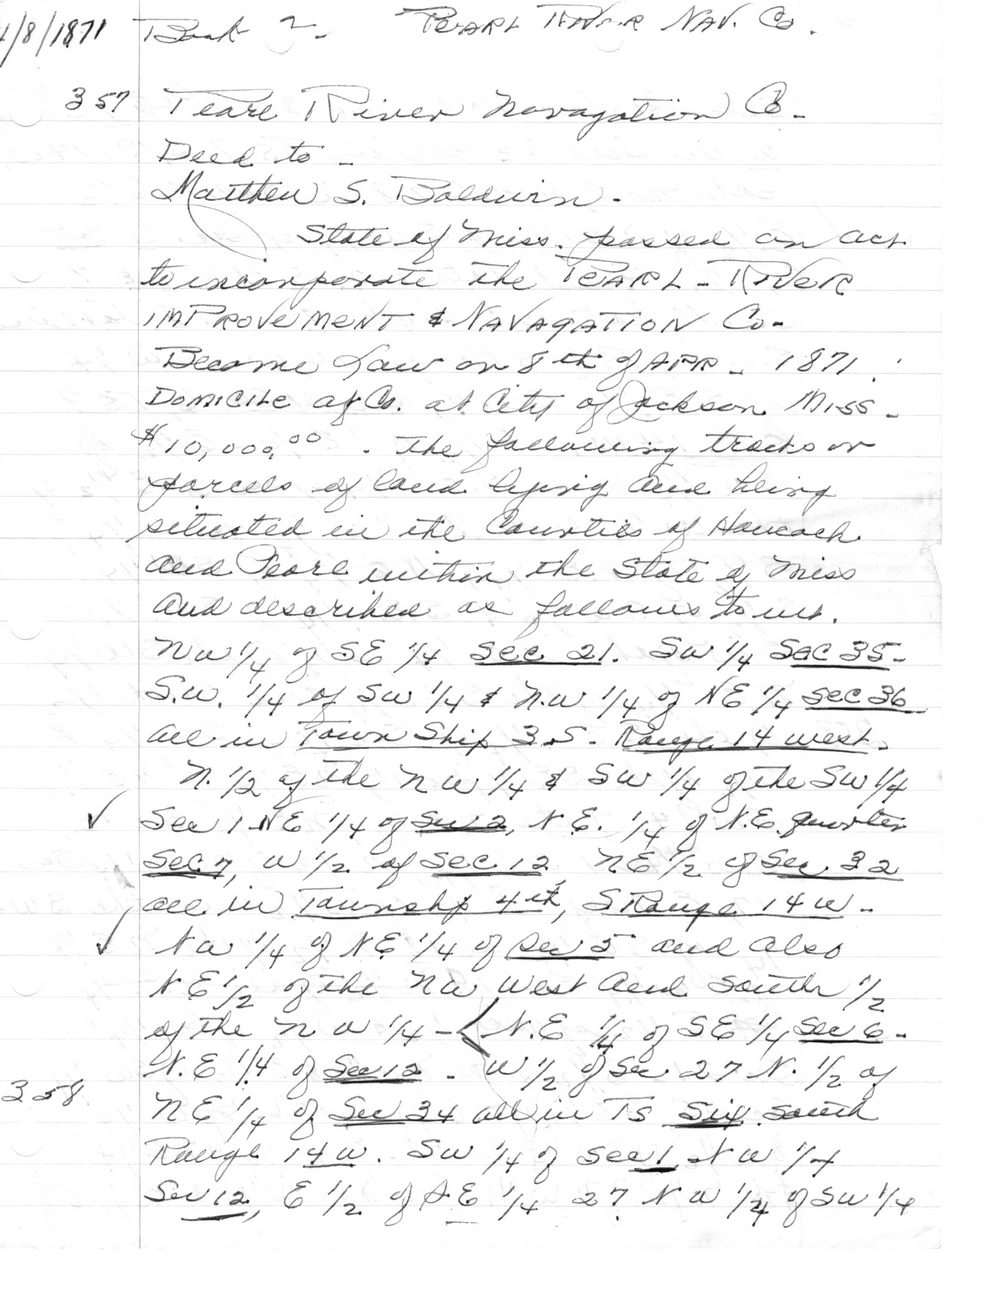 4/8/1871 Book 2. PEARL RIVER NAV. Co.
357 Pearl River Navagation Co.
Deed to -
Matthew S. Baldwin.
State of Miss. passed an act
to incorporate the PEARL - RIVER
IMPROVEMENT & NAVAGATION Co-
Become Law on 8th of APR - 1871.
DOMICILE of Co. at City of Jackson Miss-
$10,000.00. The following tracks or
parcels of land lying and being
situated in the Counties of Hancock
and Pearl within the State of Miss
and described as follows to wit.
NW 1/4 of SE 1/4 Sec 21. SW 1/4 Sec 35-
S.W. 1/4 of SW 1/4 & N.W 1/4 of NE 1/4 Sec 36
all in Town Ship 3.S. Range 14 west.
N. 1/2 of the NW 1/4 & SW 1/4 of the SW 1/4
Sec 1 NE 1/4 of Sec 2, N.E. 1/4 of N.E. quarter
Sec 7, W 1/2 of Sec. 12, NE 1/2 of Sec. 32
all in Townshp 4th, S Range 14 W-
NW 1/4 of NE 1/4 of Sec 5 and also
NE 1/2 of the NW West and South 1/2
of the NW 1/4 - < N.E 1/4 of SE 1/4 Sec 6-
N.E 1/4 of Sec 12 - W 1/2 of Sec 27 N. 1/2 of
358 NE 1/4 of Sec 34 all in Ts Six South
Range 14 W. SW 1/4 of Sec 1 NW 1/4
Sec 12, E 1/2 of S.E 1/4 27 NW 1/4 of SW 1/4